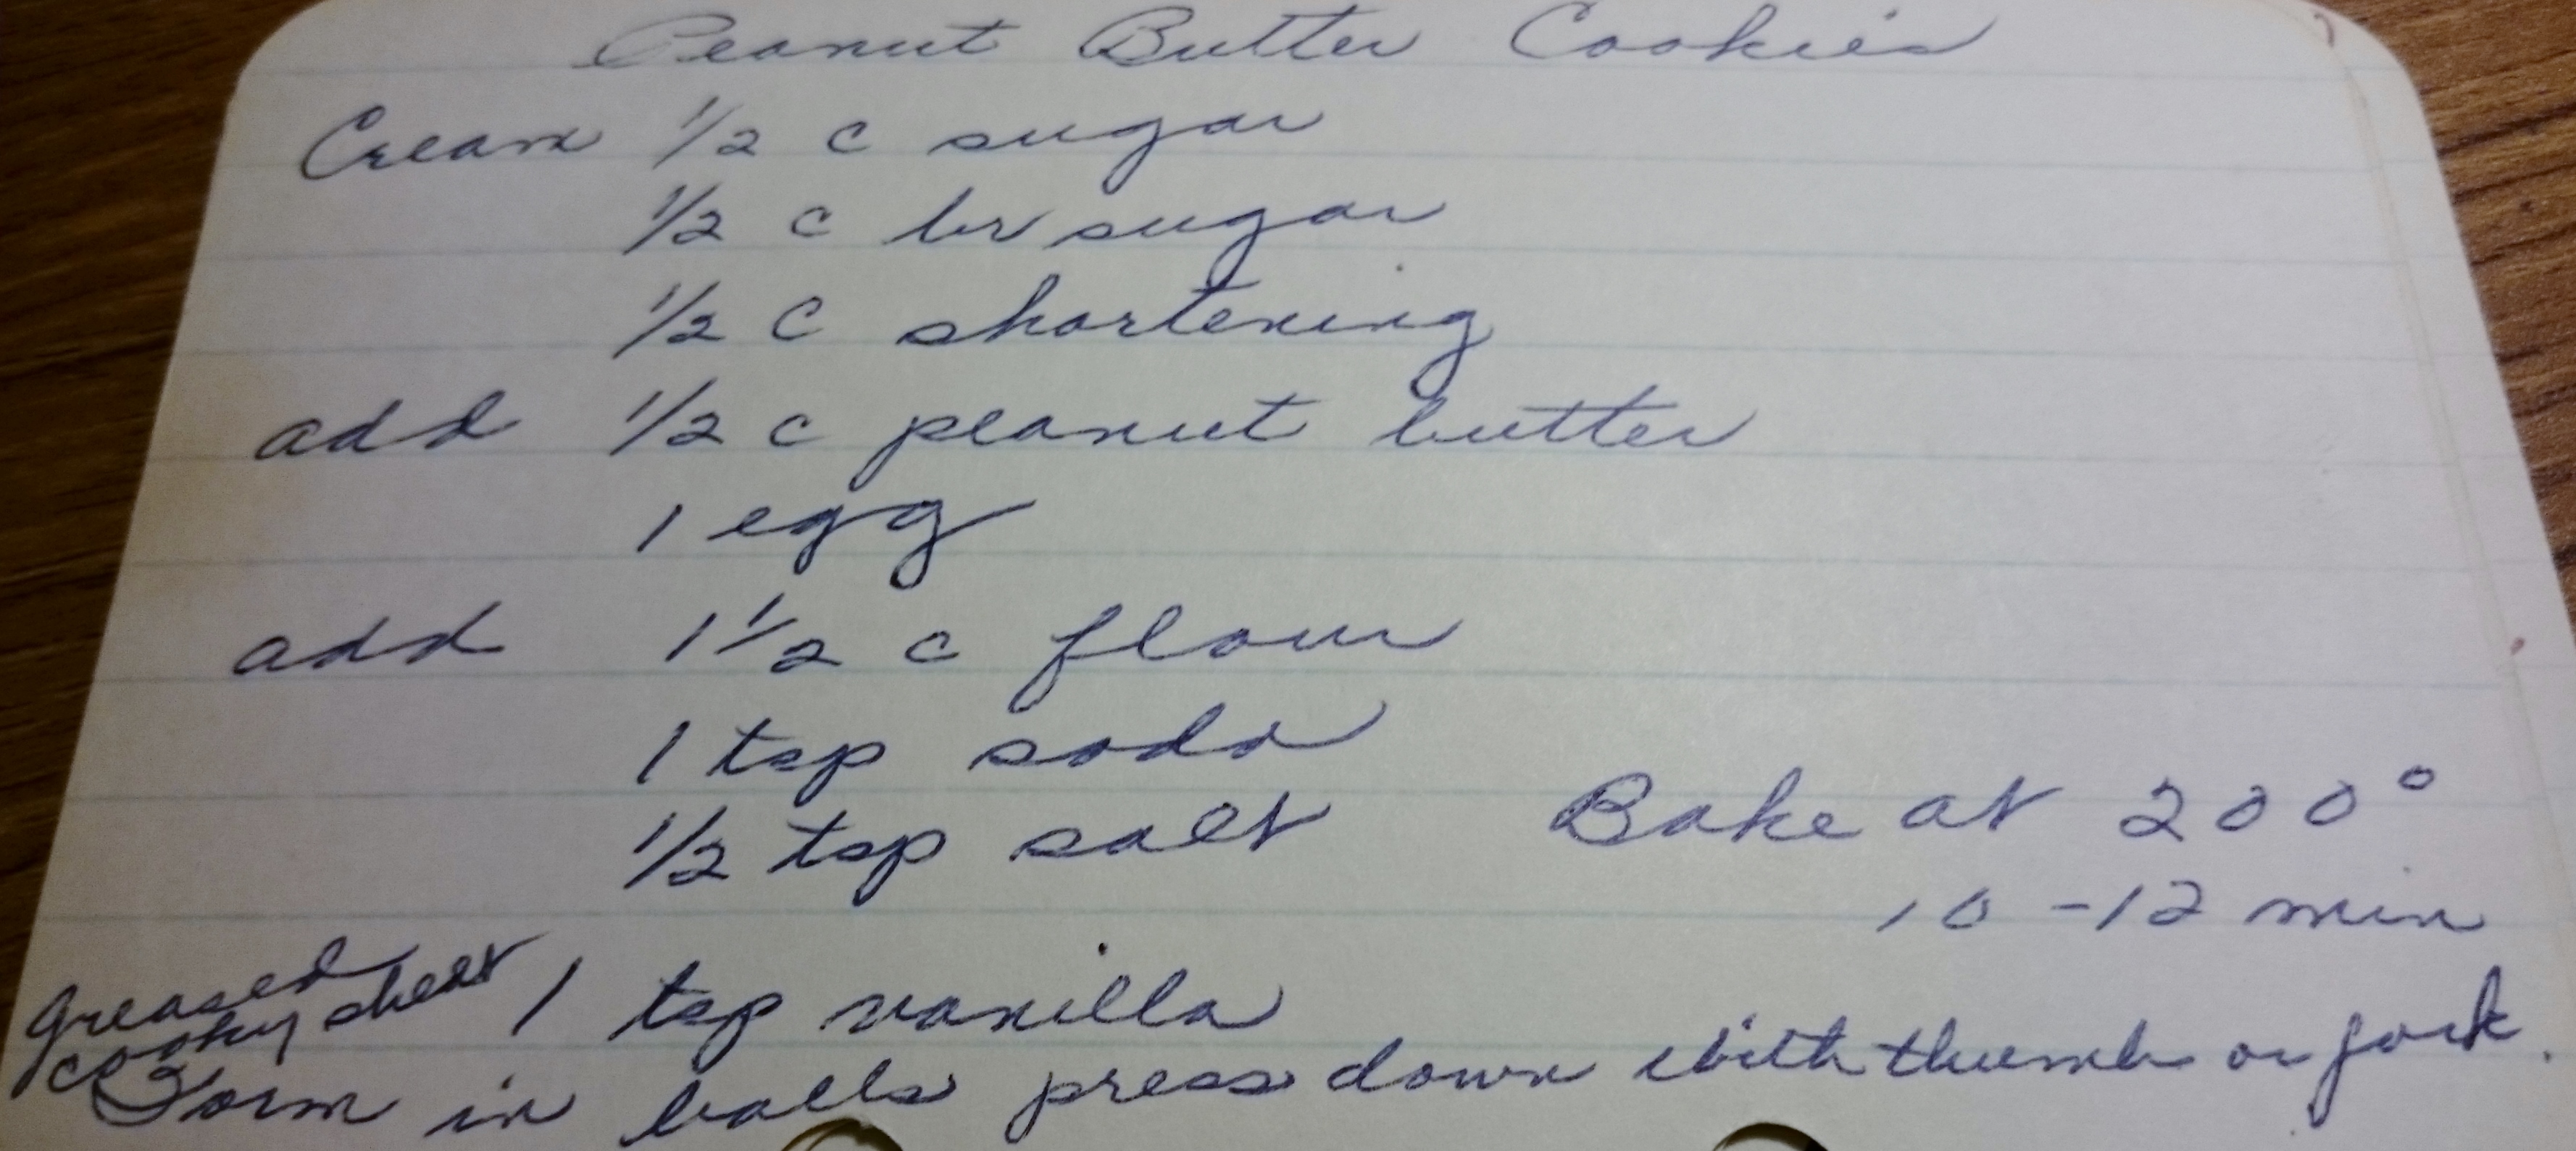 Peanut Butter Cookies
Cream 1/2 c sugar
1/2 c br sugar
1/2 c shortening
add 1/2 c peanut butter
1 egg
add 1 1/2 c flour
1 tsp soda
1/2 tsp salt
Bake at 200°
10-12 min
greased
cooky sheet
1 tsp vanilla
Form in balls press down with thumb or fork.